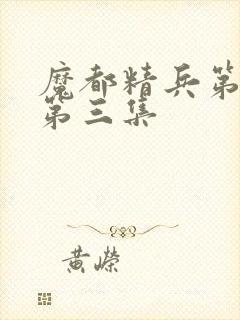 魔都精兵第
第三集
黄荣